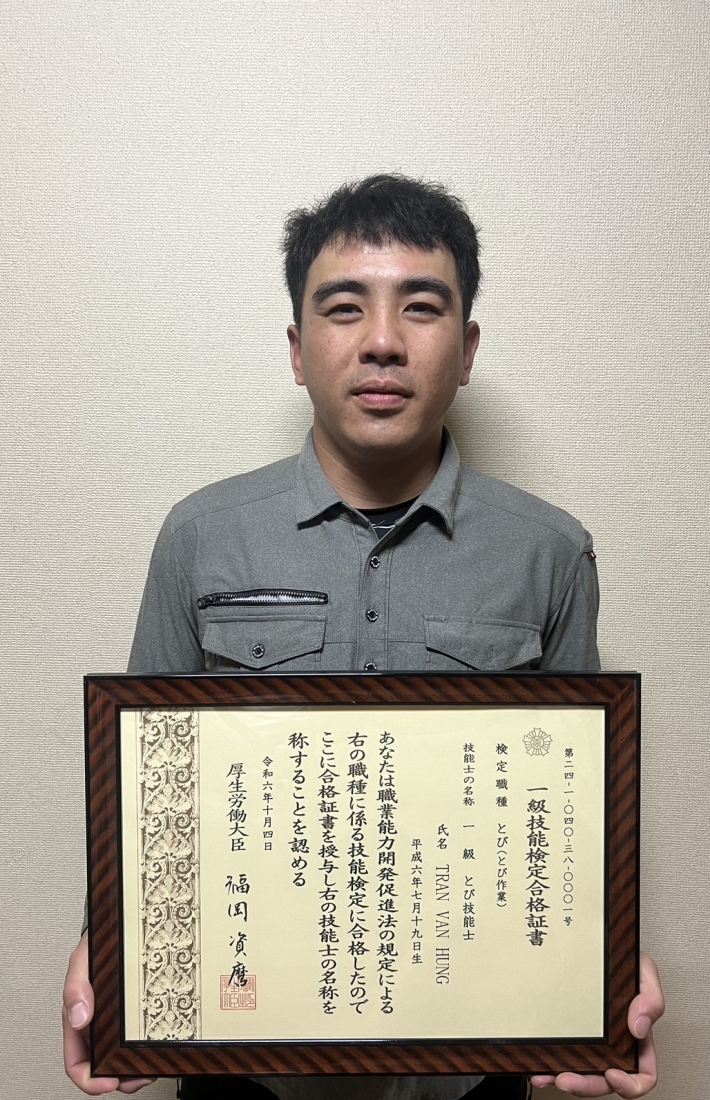 第二四-一-〇四〇-三八-〇〇〇一号
一級技能検定合格証書
検定職種 とび(とび作業)
技能士の名称 一級 とび技能士
氏名 TRAN VAN HUNG
平成六年七月十九日生
あなたは職業能力開発促進法の規定による
右の職種に係る技能検定に合格したので
ここに合格証書を授与し右の技能士の名称を
称することを認める
令和六年十月四日
厚生労働大臣 福岡資麿